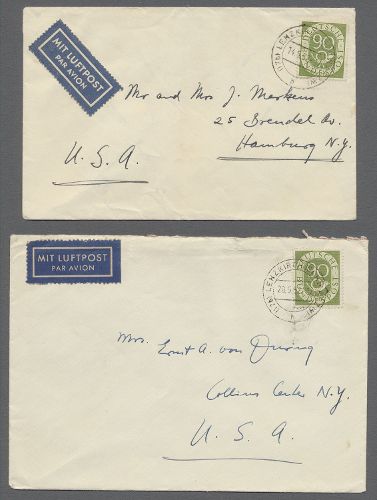 MIT LUFTPOST
PAR AVION
LENZKIRCH
DEUTSCHE POST
90
Mr and Mrs J. Merkens
25 Brendel Av.
Hamburg N.Y.
U.S.A.
MIT LUFTPOST
PAR AVION
LENZKIRCH
DEUTSCHE POST
90
Mrs. Ernst A. von During
Collins Center N.Y.
U.S.A.